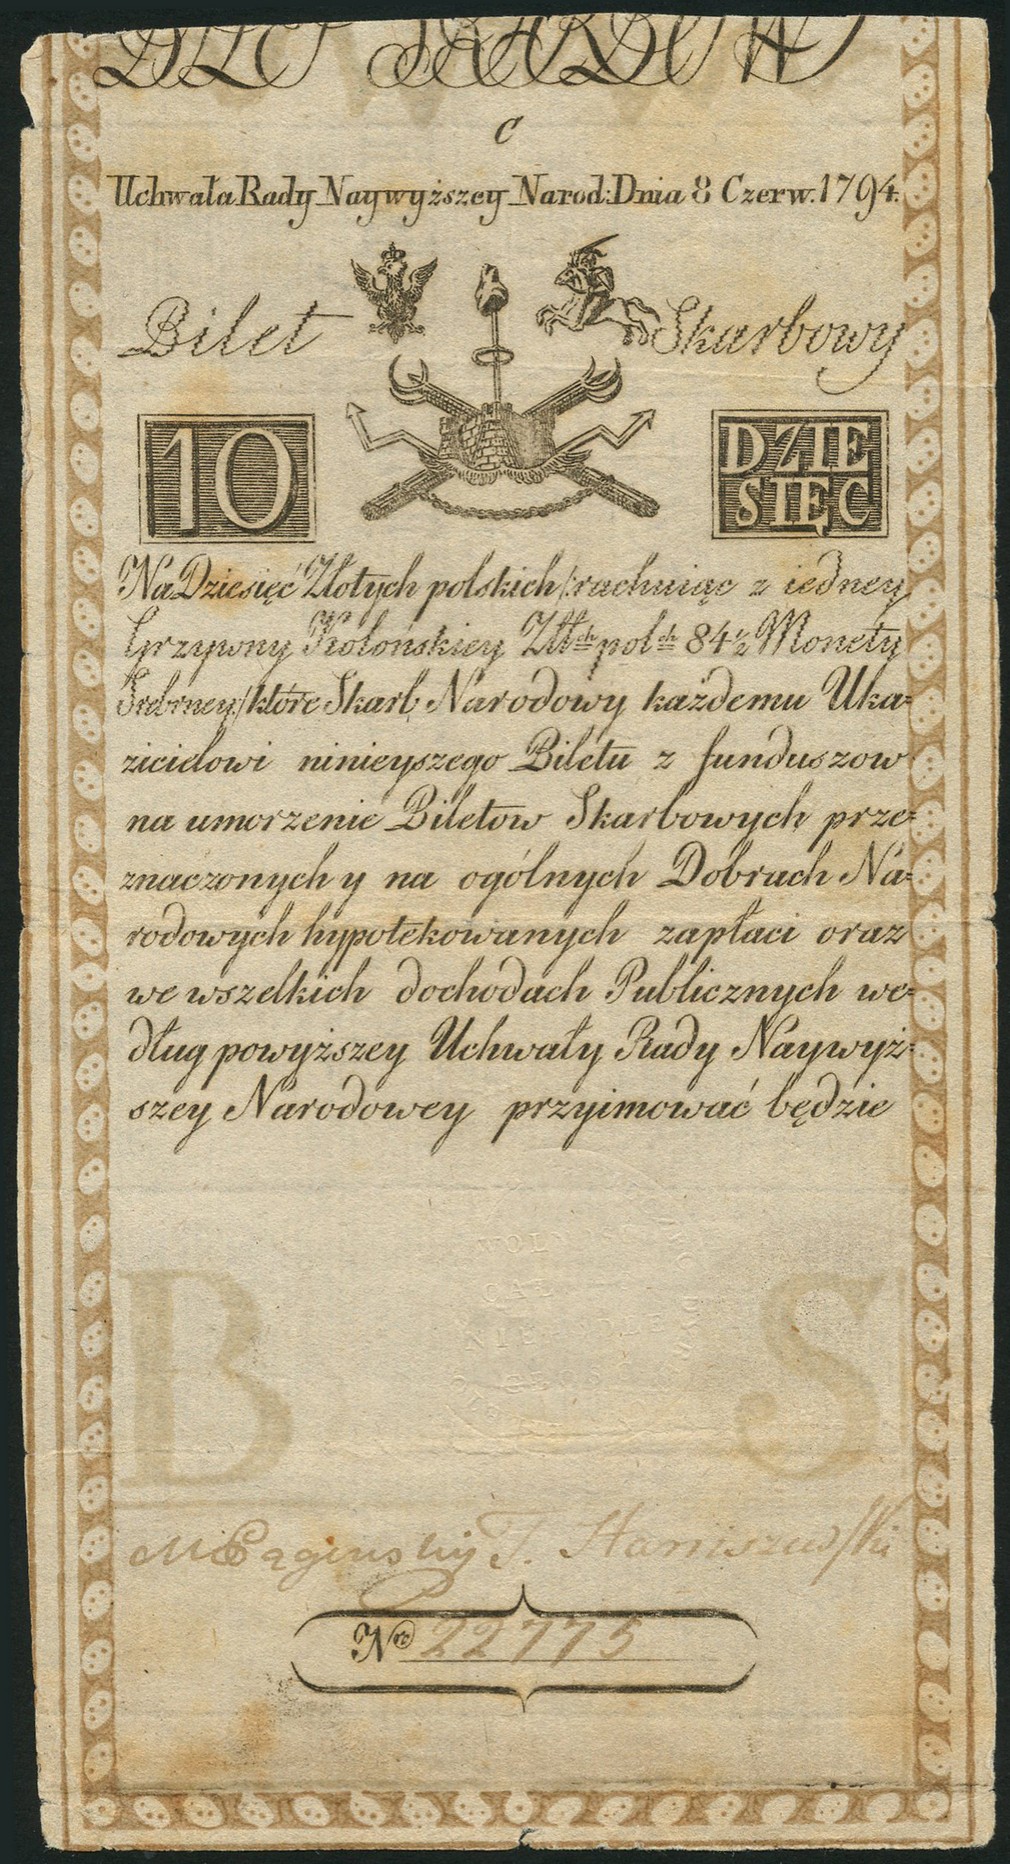 BILET SKARBOWY
C
Uchwała Rady Naywyższey Narod: Dnia 8 Czerw. 1794.
Bilet Skarbowy
10 DZIE
SIĘC
Na Dziesięć Złotych polskich /:rachuiąc z iedney
Grzywny Kolońskiey Złłch polch 84½ Monety
Srebrney:/ które Skarb Narodowy każdemu Uka=
zicielowi ninieyszego Biletu z funduszow
na umorzenie Biletow Skarbowych prze=
znaczonych y na ogólnych Dobrach Na=
rodowych hypotekowanych zapłaci oraz
we wszelkich dochodach Publicznych we=
dług powyższey Uchwały Rady Naywyż=
szey Narodowey przyimować będzie
B S
T. Staniszewski
Nro 22775